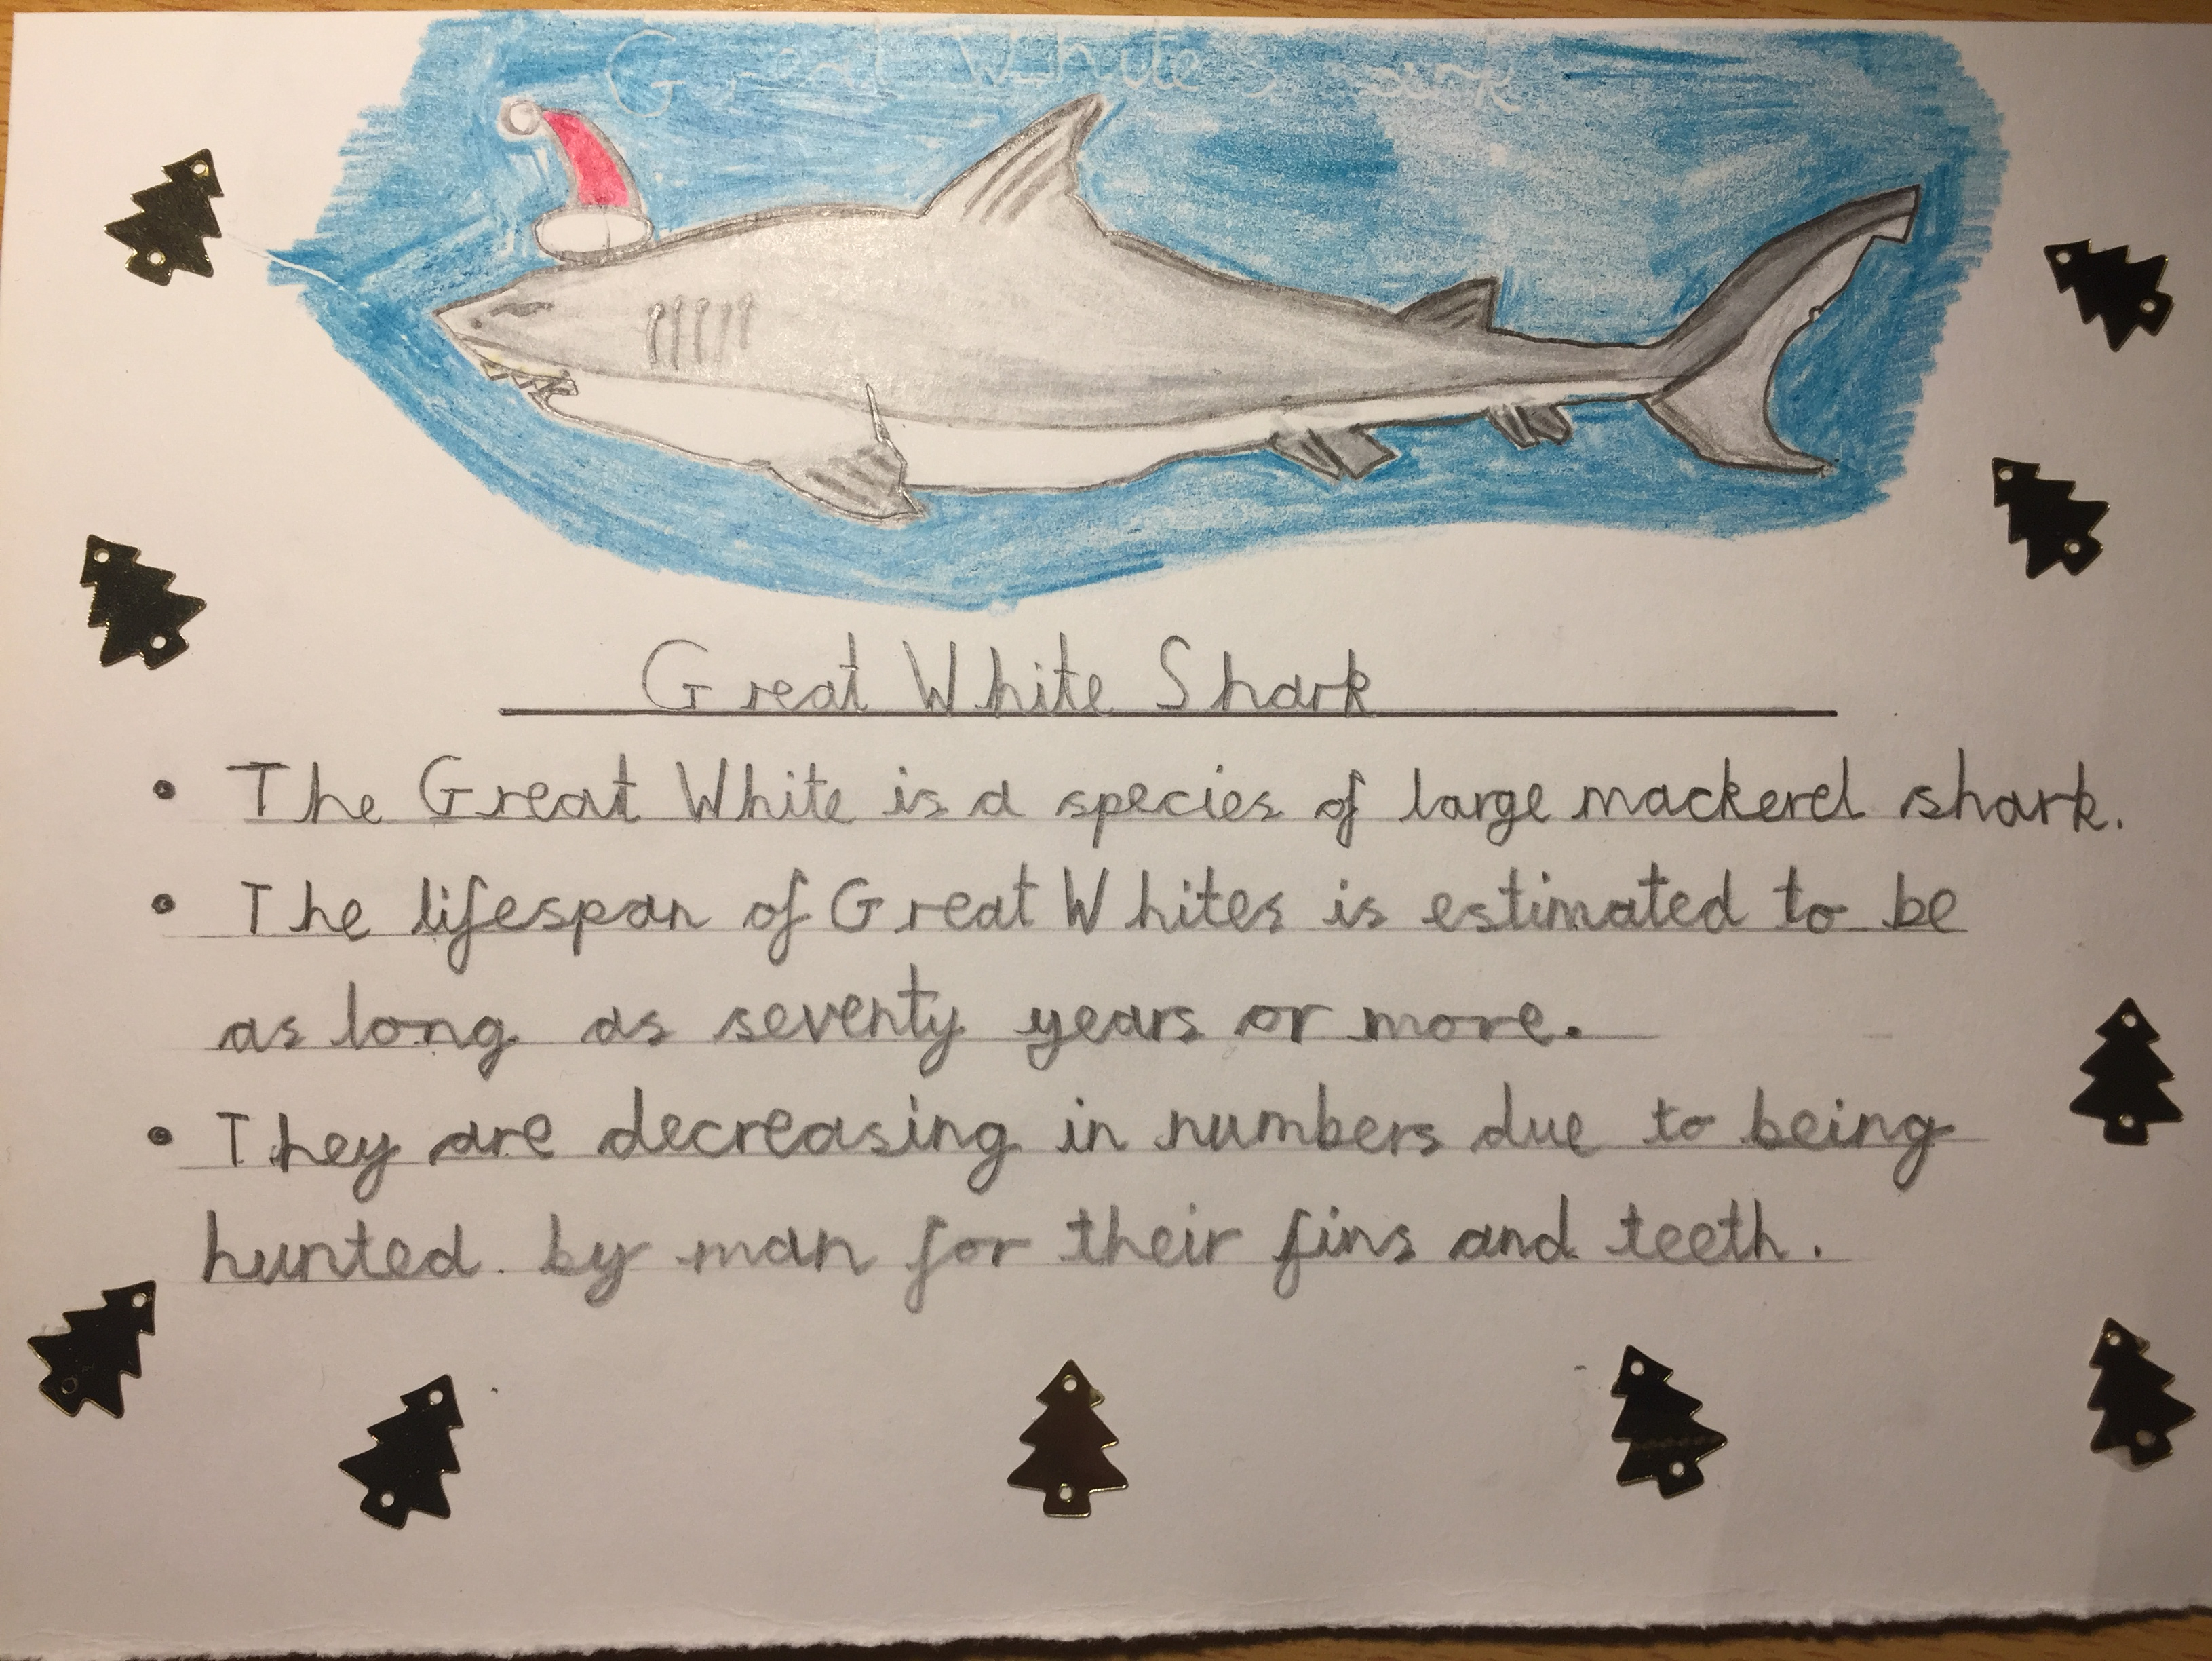 Great White Shark
Great White Shark
• The Great White is a species of large mackerel shark.
• The lifespan of Great Whites is estimated to be
as long as seventy years or more.
• They are decreasing in numbers due to being
hunted by man for their fins and teeth.